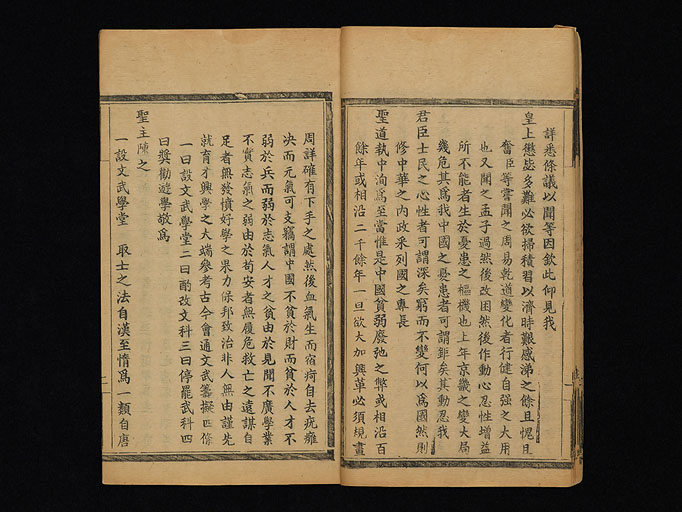 詳悉條議以聞等因欽此仰見我
皇上懲毖多難必欲掃積習以濟時艱感涕之餘且愧且
奮臣等嘗聞之周易乾道變化者行健自强之大用
也又聞之孟子過然後改困然後作動心忍性增益
所不能者生於憂患之樞機也上年京畿之變大局
幾危其爲我中國之憂患者可謂鉅矣其動忍我
君臣士民之心性者可謂深矣窮而不變何以爲國然則
修中華之內政采列國之專長
聖道執中洵爲至當惟是中國貧弱廢弛之弊或相沿百
餘年或相沿二千餘年一旦欲大加興革必須規畫
周詳確有下手之處然後血氣生而宿痾自去疣癰
决而元氣可支竊謂中國不貧於財而貧於人才不
弱於兵而弱於志氣人才之貧由於見聞不廣學業
不實志氣之弱由於苟安者無履危救亡之遠謀自
足者無發憤好學之果力保邦致治非人無由謹先
就育才興學之大端參考古今會通文武籌擬四條
一曰設文武學堂二曰酌改文科三曰停罷武科四
曰奬勸遊學敬爲
聖主陳之
一設文武學堂 取士之法自漢至惰爲一類自唐